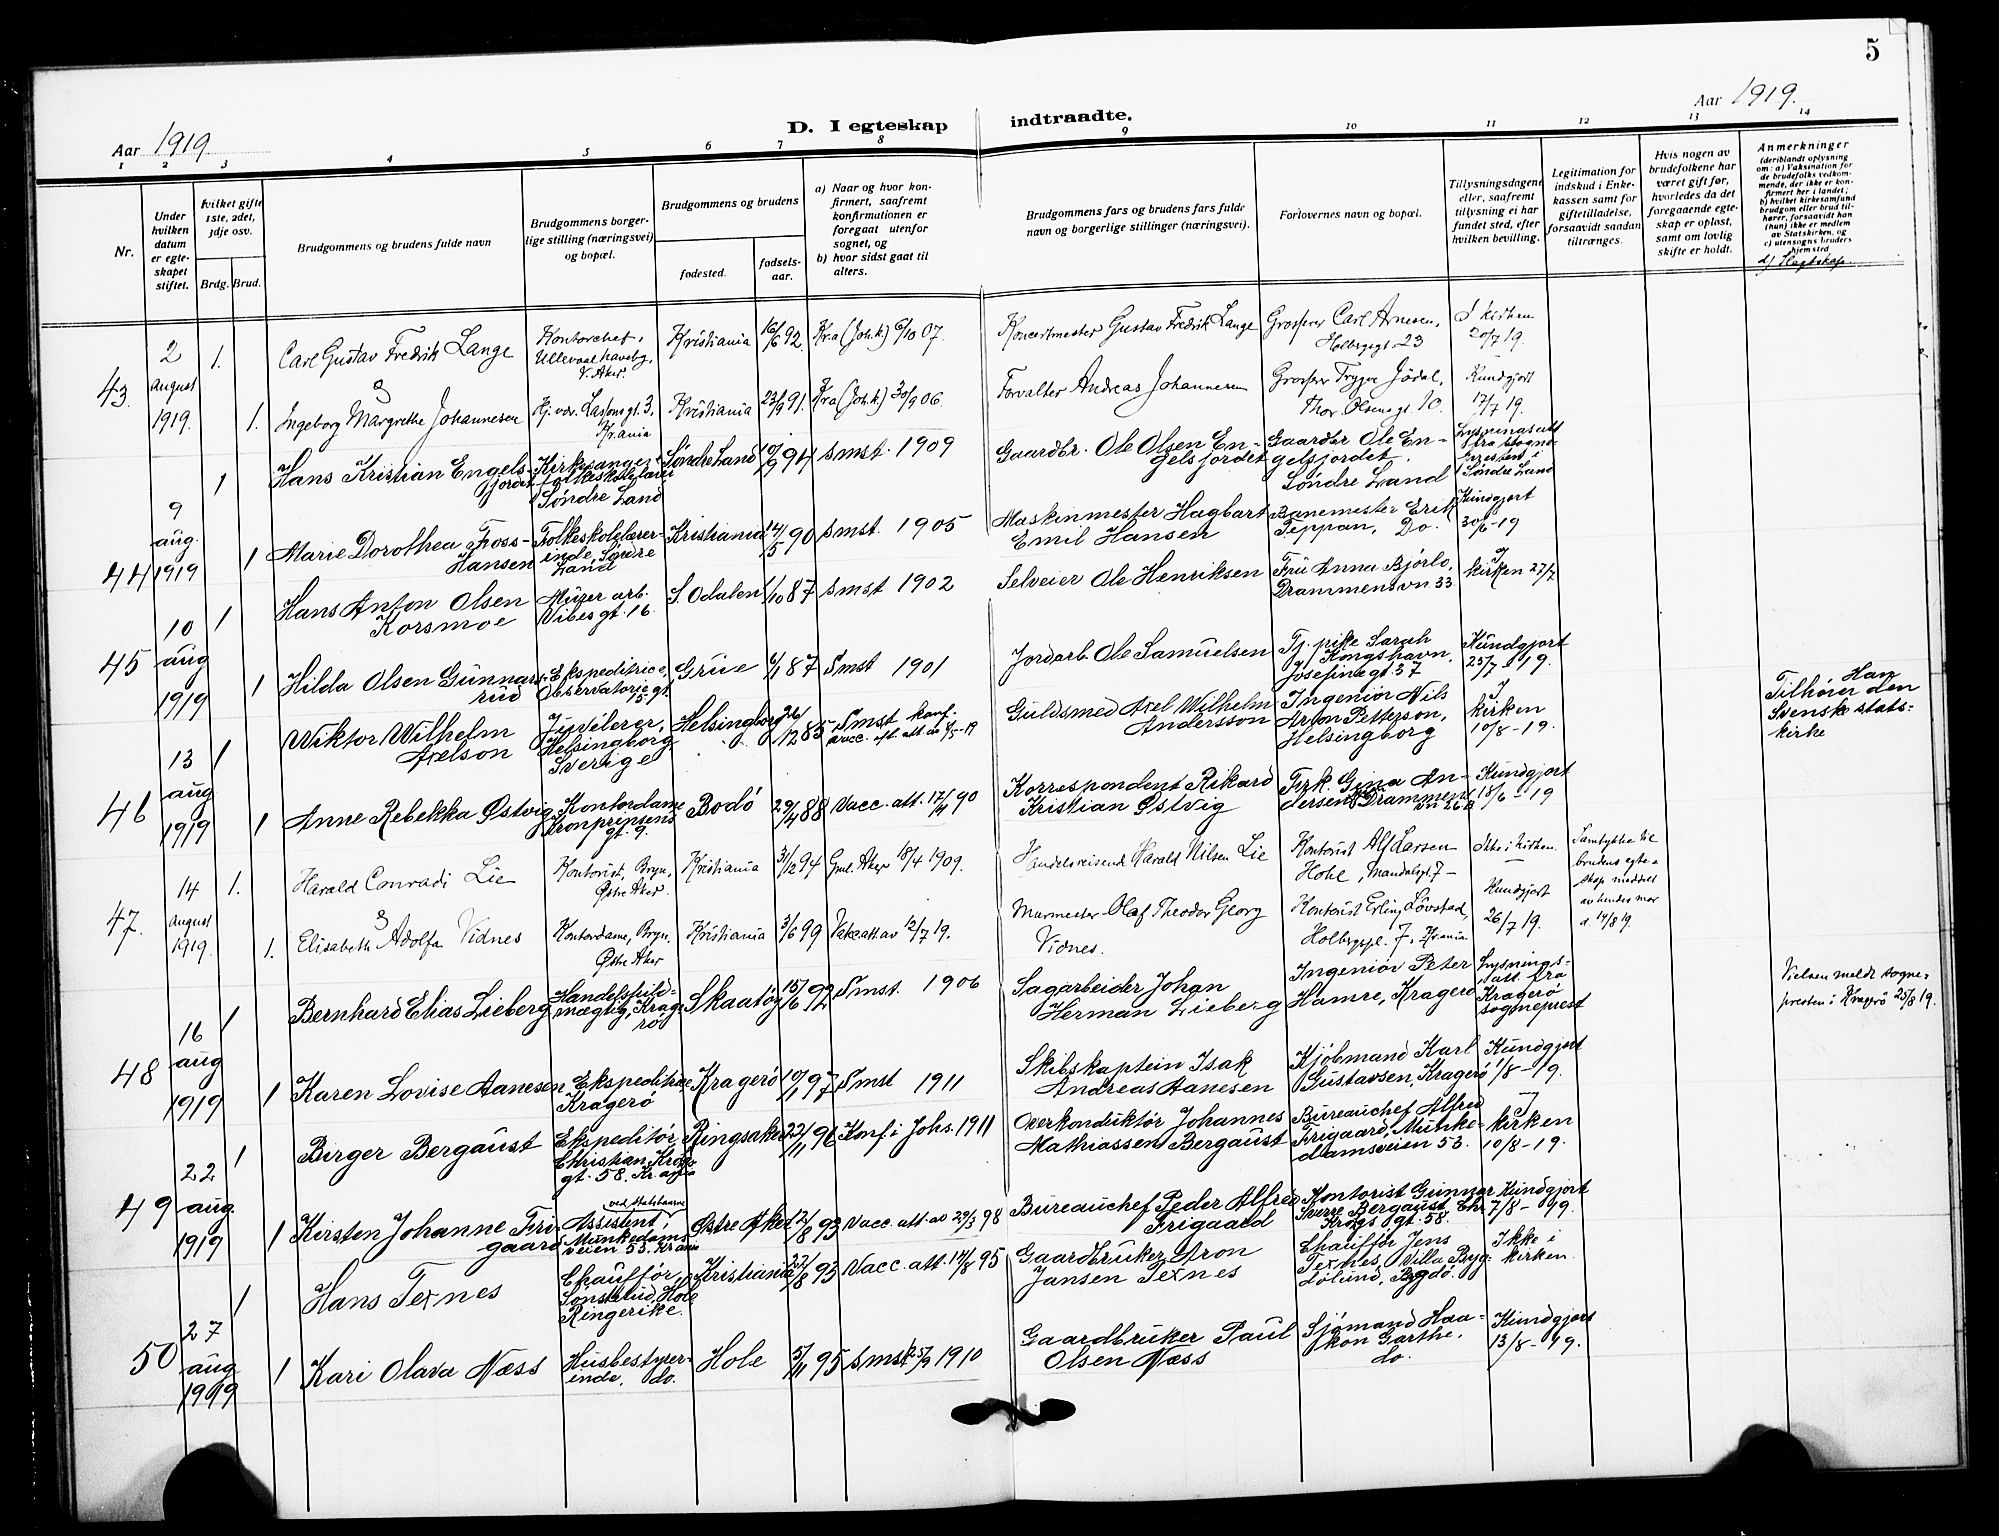 5
Aar 1919.
Aar 1919
D. I egteskap indtraadte.
1 2 3 4 5 6 7 8 9 10 11 12 13 14
Nr.
Under
hvilken
datum
er egte-
skapet
stiftet.
Hvilket gifte
1ste, 2det,
3dje osv.
Brdg. Brud.
Brudgommens og brudens fulde navn
Brudgommens borger-
lige stilling (næringsvei)
og bopæl.
Brudgommens og brudens
fødested.
fødsels-
aar.
a) Naar og hvor kon-
firmert, saafremt
konfirmationen er
foregaat utenfor
sognet, og
b) hvor sidst gaat til
alters.
Brudgommens fars og brudens fars fulde
navn og borgerlige stillinger (næringsvei).
Forlovernes navn og bopæl.
Tillysningsdagene
eller, saafremt
tillysning ei har
fundet sted, efter
hvilken bevilling.
Legitimation for
indskud i Enke-
kassen samt for
giftetilladelse,
forsaavidt saadan
tiltrænges.
Hvis nogen av
brudefolkene har
været gift før,
hvorledes da det
foregaaende egte-
skap er opløst,
samt om lovlig
skifte er holdt.
Anmerkninger
(deriblandt oplysning
om: a) Vaksination for
de brudefolks vedkom-
mende, der ikke er kon-
firmert her i landet;
b) hvilket kirkesamfund
brudgom eller brud til-
hører, forsaavidt han
(hun) ikke er medlem
av Statskirken, og
c) utensogns bruders
hjemsted
d) Slegtskap.
43.
2
August
1919.
1.
Carl Gustav Fredrik Lange
Kontorchef,
Ullevaal haveby,
V. Aker.
Kristiania
16/6 92.
Kr.a (Joh.k.) 6/10 07.
Koncertmester Gustav Fredrik Lange
Grosserer Carl Arnesen,
Holbergsgt. 23
I kirken
20/7 19.
&
1.
Ingeborg Margrethe Johannesen
Hj. vdr. Lassonsgt. 3,
Kr.ania
Kristiania
23/9 91.
Kr.a (Joh.k.) 30/9 06.
Forvalter Andreas Johannesen
Grosserer Trygve Jödal,
Thor Olsens gt. 10.
Kundgjort
17/7 19.
44
9
aug.
1919
1
Hans Kristian Engels-
jordet
Kirkesanger &
folkeskolelærer
Søndre Land
Søndre Land
10/9 94
Smst. 1909
Gaardbr. Ole Olsen En-
gelsjordet
Gaardbr Ole En-
gelsjordet.
Søndre Land
Lysningsatt
fra sogne-
presten i
Søndre Land
1
Marie Dorothea Foss-
Hansen
Folkeskolelærer-
inde, Søndre
Land
Kristiania
14/5 90
Smst. 1905
Maskinmester Hagbart
Emil Hansen
Banemester Erik
Teppan, Do.
Kundgjort
30/6-19
45
10
aug
1919
1
Hans Anton Olsen
Korsmoe
Murer arb.
Vibes gt. 16
S. Odalen
1/10 87
Smst 1902
Selveier Ole Henriksen
Fru Anna Bjørlo,
Drammensvn 33.
I
kirken 27/7
1
Hilda Olsen Gunnars-
rud
Ekspeditrice,
Observatorie gt.
15
Grue
6/1 87
Smst 1901
Jordarb. Ole Samuelsen
Tj. pike Sarah
Kongshavn,
Josefinegt 37
Kundgjort
25/7-19.
46
13
aug
1919
1
Wiktor Wilhelm
Axelson
Juvilerer,
Helsingborg
Sverige
Helsingborg
26/12 85
Smst konf.
vacc. eft. att. av 9/5-19
Guldsmed Axel Wilhelm
Andersson
Ingeniør Nils
Aron Petterson,
Helsingborg
I
kirken
10/8-19.
Han
Tilhører den
Svenske stats-
kirke
1
Anne Rebekka Østvig
Kontordame
Kronprinsens
gt. 9.
Bodö
29/4 88
Vacc. att. 17/4 90
Korrespondent Rikard
Kristian Østvig
Frk. Gina An-
dersen, Drammens
vn 26 B
Kundgjort
18/6-19
47.
14
August
1919.
1.
Harald Conradi Lie
Kontorist, Bryn,
Østre Aker.
Kristiania
31/2 94
Gml. Aker 18/4 1909.
Handelsreisend. Harald Nilsen Lie
Kontorist Alf Larsen
Hohle, Mandalsgt. 7 -
Ikke i kirken.
Samtykke til
brudens egte-
skap meddelt
av hendes mor
d. 14/8 19.
&
1.
Elisabeth Adolfa Vidnes
Kontordame, Bryn,
Østre Aker
Kristiania
3/6 99
Vakc. att. av 12/7 19.
Murmester Olaf Theodor Georg
Vidnes.
Kontorist Erling Lövstad,
Holbergspl. 7, Kr.ania
Kundgjort
26/7 19.
48
16
aug
1919
1
Bernhard Elias Lieberg
Handelsfuld-
mægtig, Krag-
rö
Skaatöy
15/6 92
Smst. 1906
Sagarbeider Johan
Herman Lieberg
Ingeniör Peter
Hamre, Kragerö
Lysnings-
att. fra
Kragerö
sogneprest
Vielsen meldt sogne-
presten i Kragerö 25/8 19.
1
Karen Lovise Aanesen
Ekspeditrice
Kragerö
Kragerö
10/1 97
Smst 1911
Skibskaptein Isak
Andreas Aanesen
Kjöbmand Karl
Gustavsen, Kragerö
Kundgjort
1/8-19.
49
22
aug.
1919
1
Birger Bergaust
Ekspeditör
Christian Krogs
gt. 58. Kr.ania
Ringsaker
22/11 96
Konf. i Johs. 1911
Overkonduktör Johannes
Mathiassen Bergaust
Bureauchef Alfred
Frigaard, Munke-
damsveien 53.
I
kirken
10/8-19.
1
Kirsten Johanne Fri-
gaard
ved Statsbanene
Assistent,
Munkedams-
veien 53. Kr.ania
Østre Aker
12/8 93
Vacc. att. av 29/3 98
Bureauchef Peder Alfred
Frigaard
Kontorist Gunnar
Sverre Bergaust, Chr.
Krogs gt. 58.
Kundgjort
7/8-1919.
50
27
aug
1919
1
Hans Texnes
Chauffør
Sönsterud, Hole
Ringerike.
Kristiania
22/8 93
Vacc. att. 14/8 95
Gaardbruker Aron
Jansen Texnes
Chauffør Jens
Texnes, Villa Byg-
Lölund, Bygdö.
Ikke i
kirken.
1
Kari Olava Næss
Husbestyrer-
inde, do.
Hole
5/11 95
Smst 25/9 1910
Gaardbruker Paul
Olsen Næss
Sjömand Haa-
kon Garthe,
do.
Kundgjort
13/8-1919.